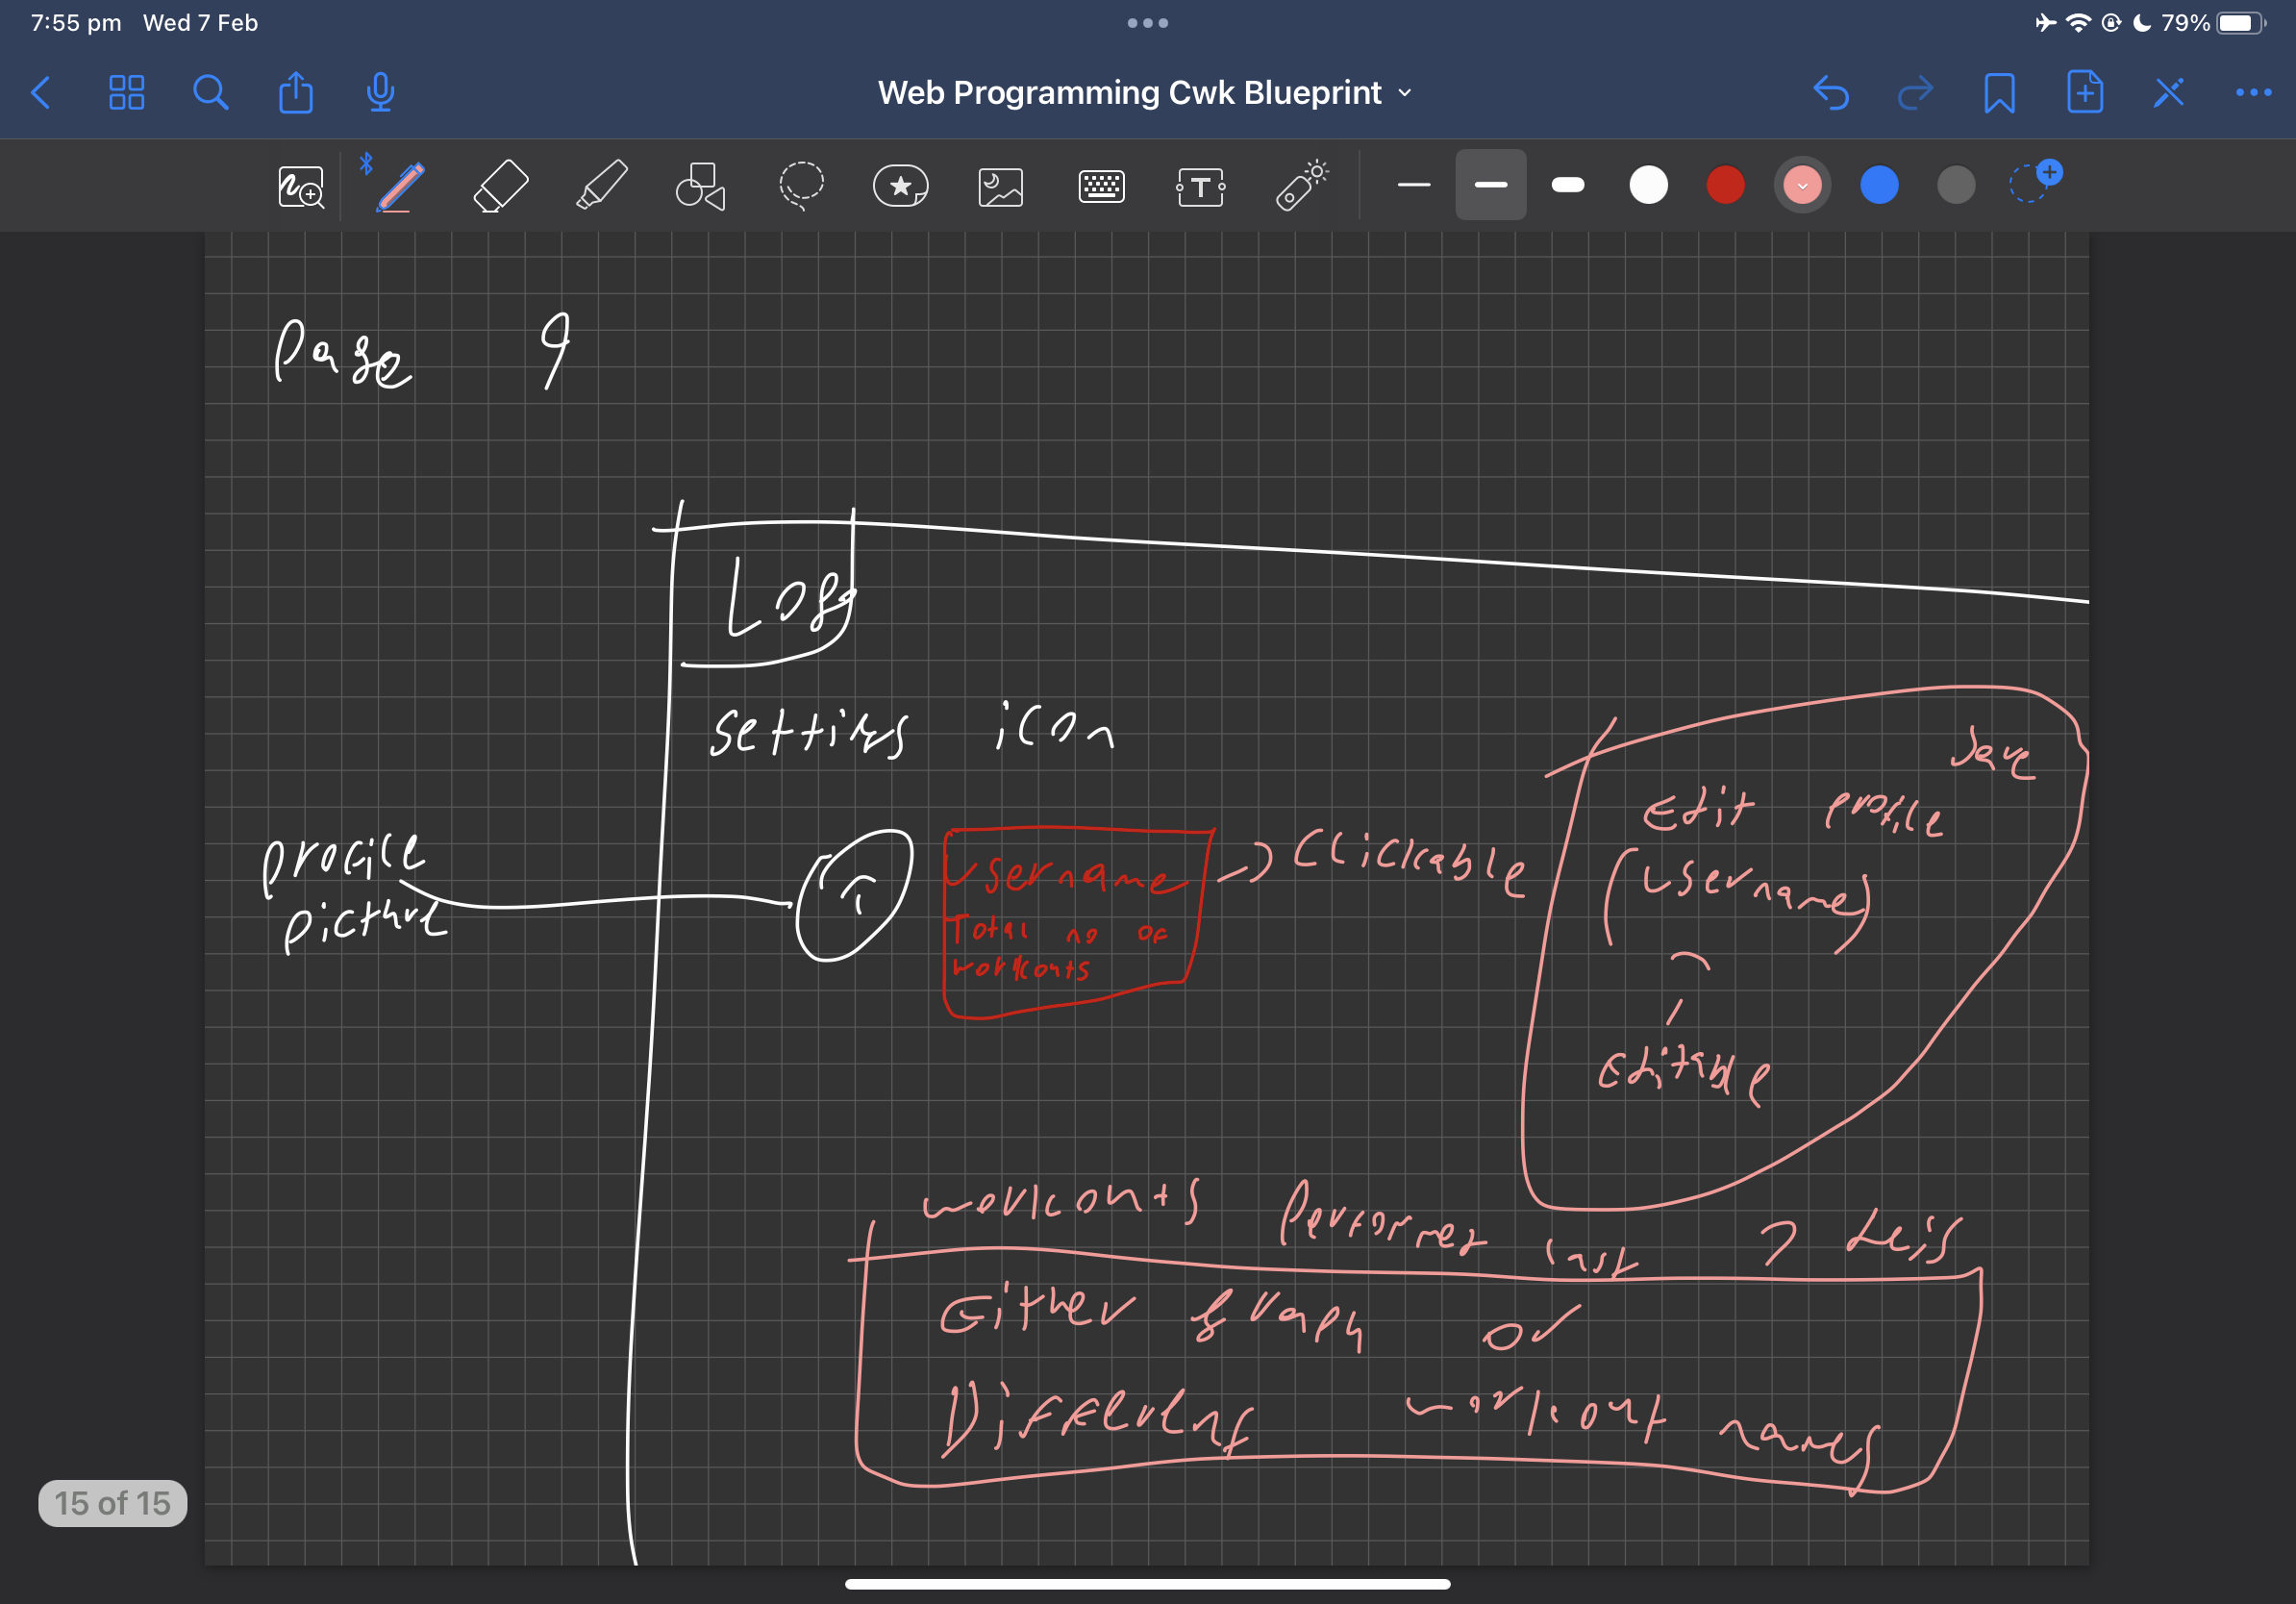 7:55 pm Wed 7 Feb
79%
Web Programming Cwk Blueprint
Page 9
Logo
settings icon
profile
picture
Username
Total no of
workouts
Clickable
Save
Edit profile
(Username)
Editable
workouts Performed last 7 days
Either graph or
Different workout names
15 of 15